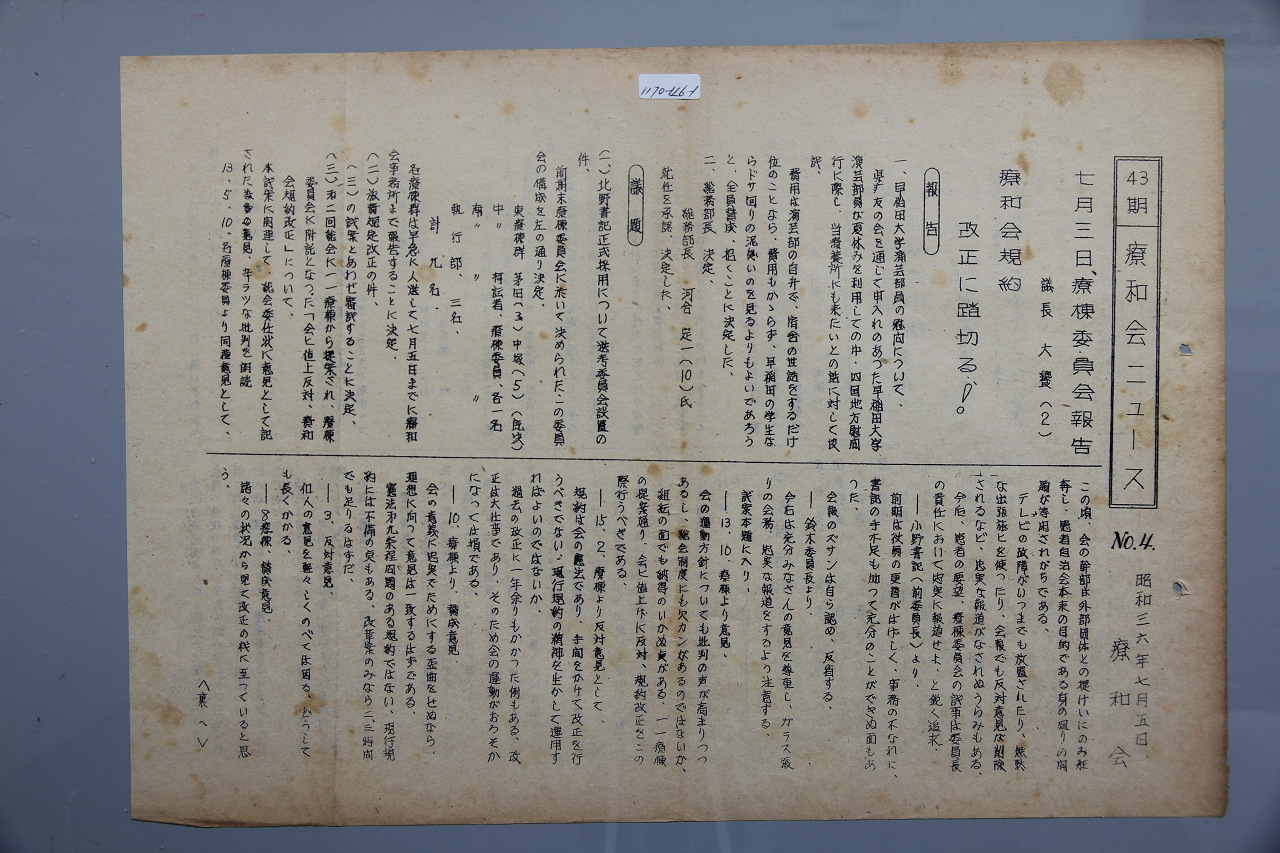 43期 療和会ニュース
No.4.
昭和三六年七月五日
療和会
七月三日、療棟委員会報告
議長 大饗(2)
療和会規約
改正に踏切る!。
報告
一、早稲田大学演芸部員の慰向について、
県予友の会を通じて申入れのあつた早稲田大学
演芸部員が夏休みを利用しての中・四国地方慰問
行に際し、当療養所にも来たいとの話に対して協
議、
費用は演芸部の自弁で、宿舎の世話をするだけ
位のことなら、費用もかゝらず、早稲田の学生な
らドサ回りの泥臭いのを見るよりもよいであろう
と、全員賛成、招くことに決定した、
二、総務部長 決定、
総務部長 河合 定一(10)氏
就任を承認 決定した、
議題
(一)、北野書記正式採用について選考委員会設置の
件、
前期末療棟委員会に於いて決められたこの委員
会の構成を左の通り決定、
東療棟群 茅田(3)中塚(5)(既決)
中〃 〃 有記者、療棟委員、各一名
南〃 〃
執行部、三名、
計 九名、
各療棟群は早急に人選して七月五日までに療和
会事務所まで報告することに決定、
(二)旅費規定改正の件、
(三)の試案とあわせ審試することに決定、
(三)第二回総会に一一療棟から提案され、療棟
委員会に附託となつた「会ヒ値上反対、療和
会規約改正」について、
本試案に関連して、総会委任状に意見として記
された数多の意見、辛ラツな批判を朗読
13、5、10、各療棟委員より同種意見として、
この頃、会の幹部は外部団体との提けいにのみ狂
奔し、患者自治会本来の目的である身の廻りの問
題が等閑されがちである、
テレビの故障がいつまでも放置されたり、無駄
な出張旅ヒを使つたり、会報でも反対意見が削除
されるなど、忠実な報道がなされぬうらみもある、
今后、患者の要望、療棟委員会の試事は委員長
の責任において忠実に報道せよ、と鋭く追求、
――小野書記(前委員長)より、
前期は役員の更替がはげしく、事務の不なれに、
書記の手不足も加つて充分のことができぬ面もあ
つた、
会報のズサンは自ら認め、反省する、
――鈴木委員長より、
今后は充分みなさんの意見を尊重し、ガラス張
りの会務、忠実な報道をするよう注意する、
試案本題に入り
――13、16、療棟より意見、
会の運動方針についても批判の声が高まりつつ
あるし、総会制度にも欠カンがあるのではないか、
組転の面でも納得のいかぬ点がある、一一療棟
の提案通り、会ヒ値上げに反対、規約改正をこの
際行うべきである、
――15、2、療棟より反対意見として、
規約は会の憲法であり、手間をかけて改正を行
うべきでない、現行規約の精神を生かして運用す
ればよいのではないか、
過去の改正に一年余りもかかつた例もある、改
正は大仕事であり、そのため会の運動がおろそか
になつては損である、
――10、療棟より、賛成意見、
会の意義に忠実でためにする歪曲をせぬなら、
理想に向つて意見は一致するはずである、
憲法第九条程問題のある規約ではない、現行規
約には不備の点もある、改革案のみなら二三時間
でも足りるはずだ、
――3、反対意見、
個人の意見を軽々しくのべては困る、どうして
も長くかかる、
――8療棟、賛成意見、
諸々の状況から見て改正の秋に至つていると思
う、
<裏へ>